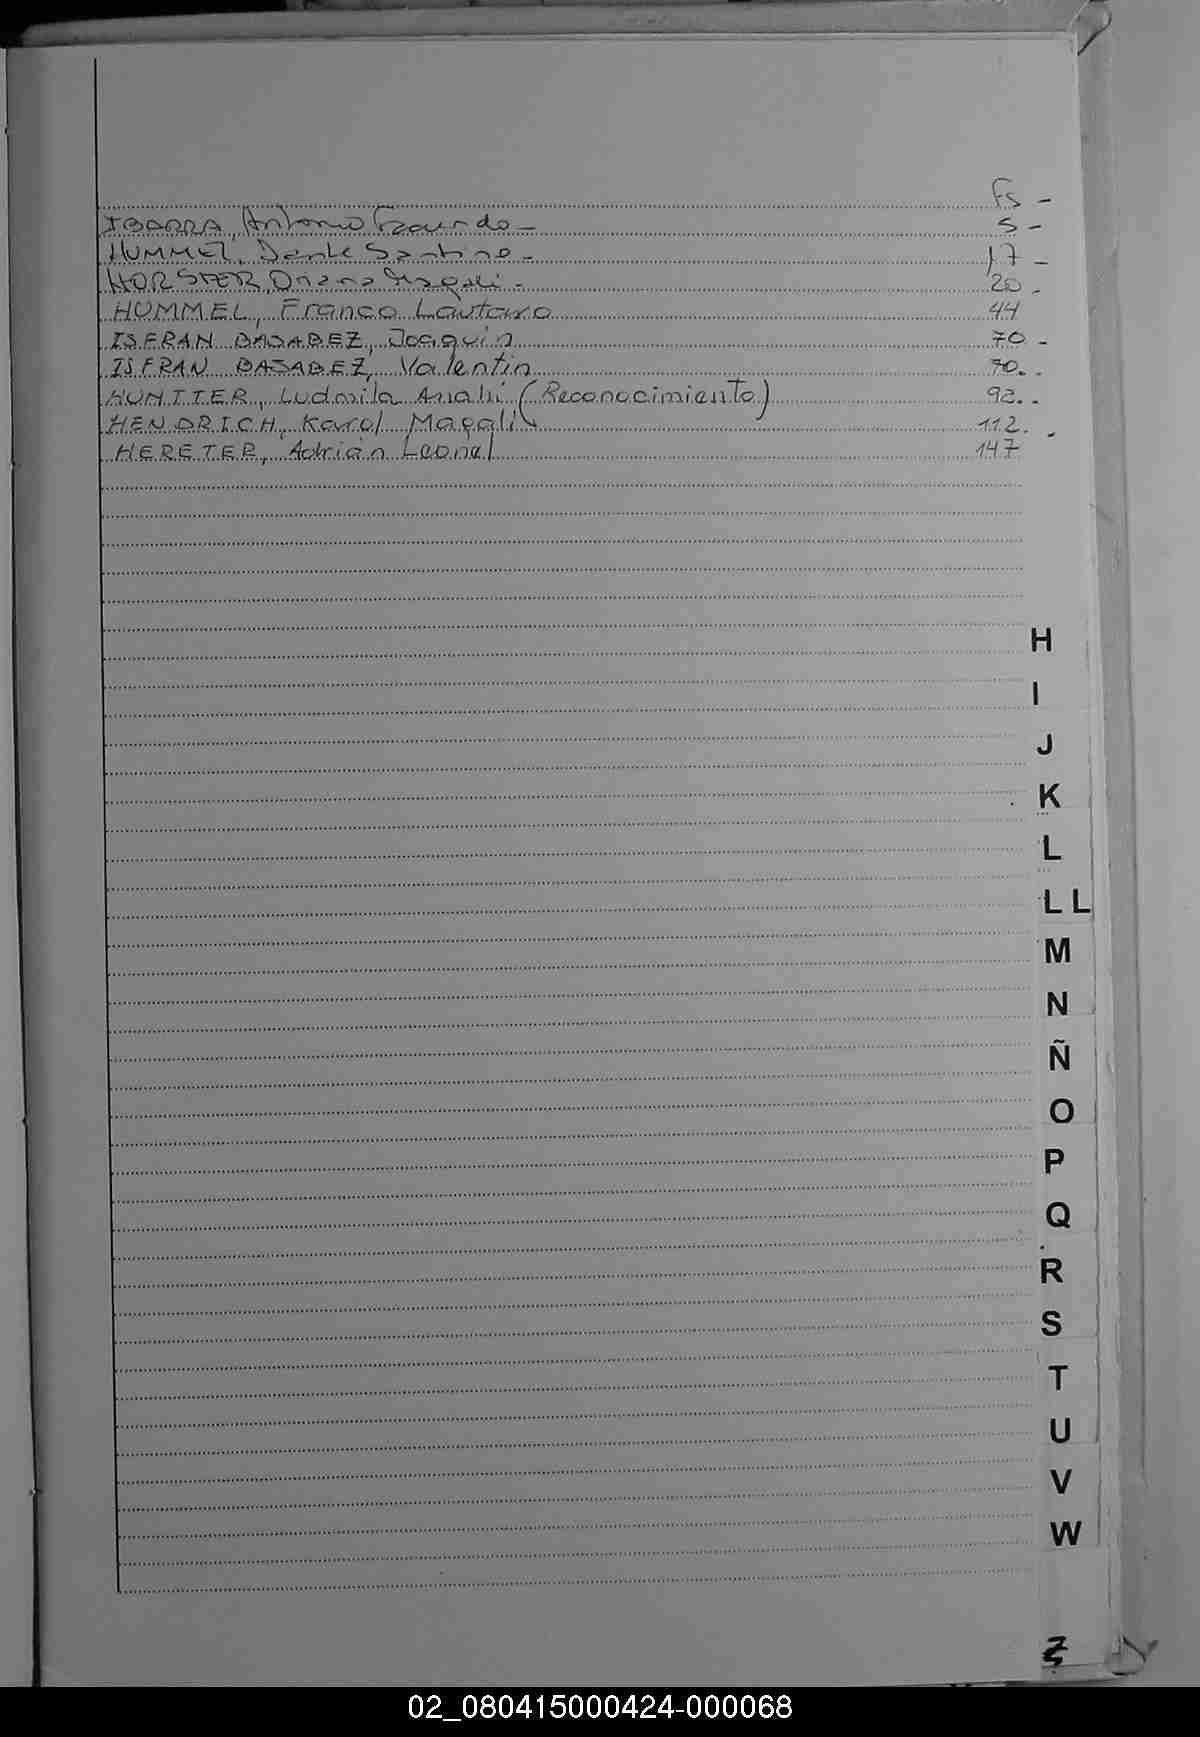 Fs -
IBARRA, Antonio Facundo - 5 -
HUMMEL, Dante Santino - 17 -
HORSTER, Oriana Magali - 20 -
HUMMEL, Franco Lautaro 44
ISFRAN BASABEZ, Joaquin 70 -
ISFRAN BASABEZ, Valentin 70 -
HUNTTER, Ludmila Anahi (Reconocimiento) 92 -
HENDRICH, Karol Magali 112 -
HERETER, Adrián Leonel 147
H
I
J
K
L
LL
M
N
Ñ
O
P
Q
R
S
T
U
V
W
Z
02_080415000424-000068